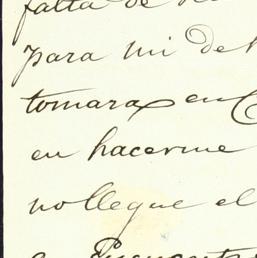 falta de
para mi de
tomara en
en hacerme
no llegue el